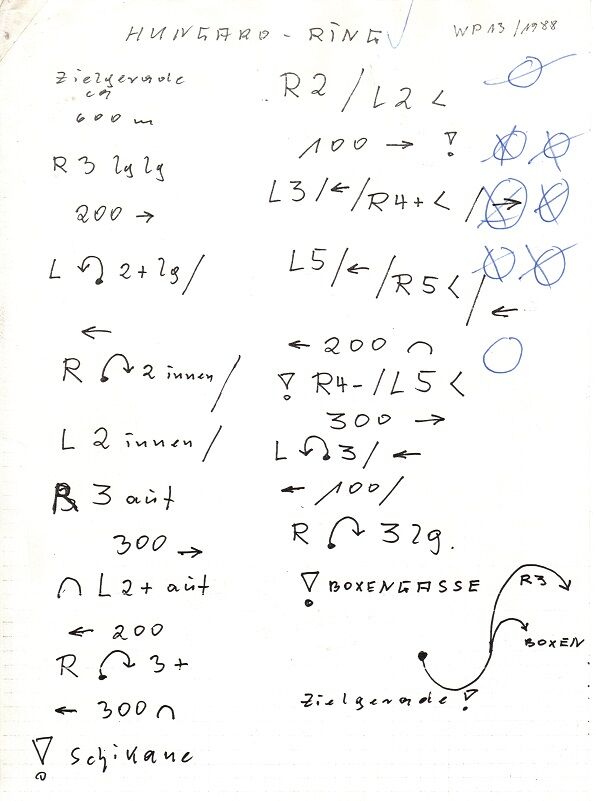 HUNGARO-RING
WP13/1988
Zielgerade
ca
600 m
R 3 lglg
200 →
L ↶ 2+ lg/
←
R ↷ 2 innen/
L 2 innen/
R 3 auf
300 →
∩ L2+ auf
← 200
R ↷ 3+
← 300 ∩
! Schikane
R2/L2<
100 → !
L3/←/R4+</→
L5/←/R5</←
← 200 ∩
! R4-/L5<
300 →
L ↶ 3/ ←
← 100/
R ↷ 3lg.
! BOXENGASSE
R3
BOXEN
Zielgerade !